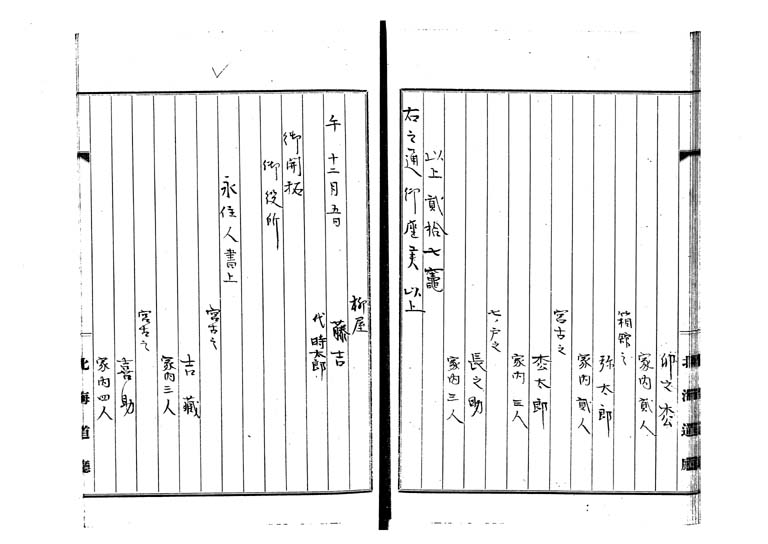 卯之松
家内貳人
箱館之
弥太郎
家内貳人
宮古之
松太郎
家内三人
七ノ戸之
長之助
家内三人
以上貳拾七竈
右之通御座候以上
柳屋
藤吉
代時太郎
午十二月五日
御開拓
御役所
永住人書上
宮古之
吉藏
家内三人
宮古之
喜助
家内四人
北海道廳
北海道廳